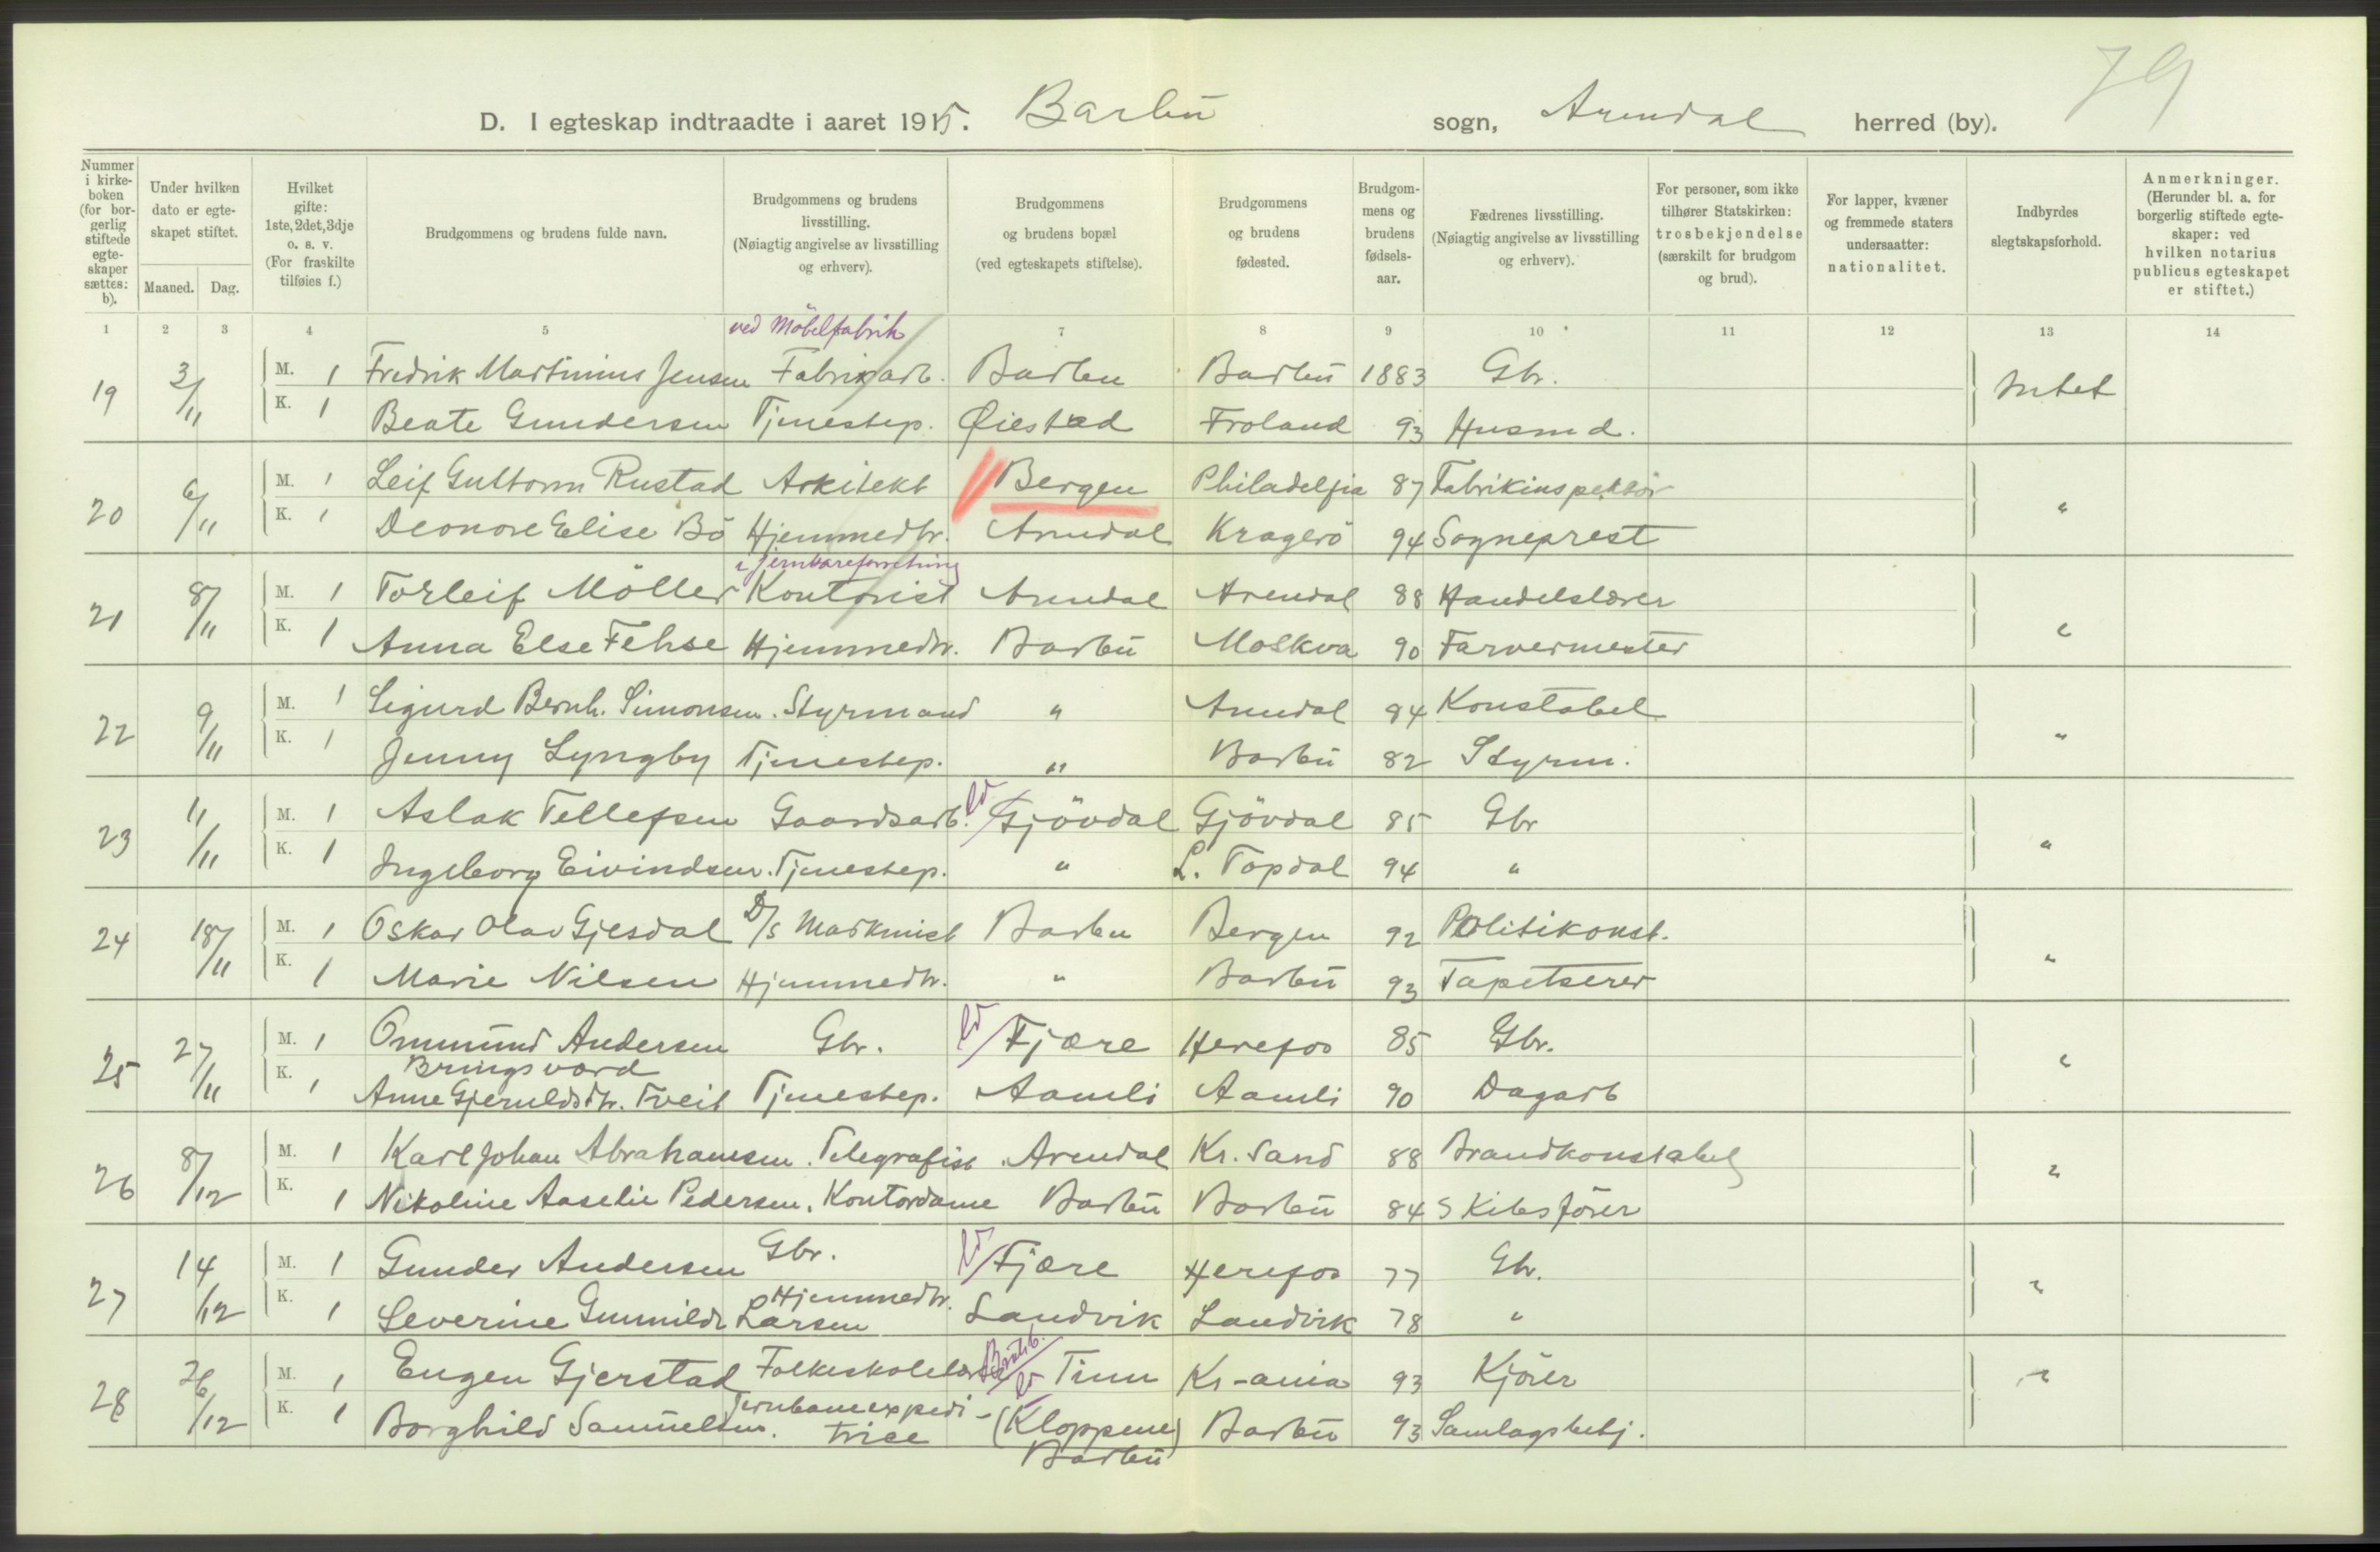 79
D. I egteskap indtraadte i aaret 1915. Barbu sogn, Arendal herred (by).
Nummer i kirke-boken (for bor-gerlig stiftede egte-skaper sættes: b).
Under hvilken dato er egte-skapet stiftet.
Maaned. Dag.
Hvilket gifte: 1ste, 2det, 3dje o. s. v. (For fraskilte tilføies f.)
Brudgommens og brudens fulde navn.
Brudgommens og brudens livsstilling. (Nøiagtig angivelse av livsstilling og erhverv).
Brudgommens og brudens bopæl (ved egteskapets stiftelse).
Brudgommens og brudens fødested.
Brudgom-mens og brudens fødsels-aar.
Fædrenes livsstilling. (Nøiagtig angivelse av livsstilling og erhverv).
For personer, som ikke tilhører Statskirken: trosbekjendelse (særskilt for brudgom og brud).
For lapper, kvæner og fremmede staters undersaatter: nationalitet.
Indbyrdes slegtskapsforhold.
Anmerkninger. (Herunder bl. a. for borgerlig stiftede egte-skaper: ved hvilken notarius publicus egteskapet er stiftet.)
1 2 3 4 5 7 8 9 10 11 12 13 14
ved Möbelfabrik
19 3/11 M. 1 Fredrik Martinius Jensen Fabrikarb. Barbu Barbu 1883 Gbr. Intet
K. 1 Beate Gundersen Tjenestep. Øiestad Froland 93 Husmd.
20 6/11 M. 1 Leif Guttorm Rustad Arkitekt Bergen Philadelfia 87 Fabrikinspektör "
K. 1 Deonore Elise Bö Hjemmedtr. Arendal Kragerö 94 Sogneprest
i Jernvareforretning
21 8/11 M. 1 Torleif Möller Kontorist Arendal Arendal 88 Handelslærer "
K. 1 Anna Else Fehse Hjemmedtr. Barbu Moskva 90 Farvermester
22 9/11 M. 1 Sigurd Bernh. Simonsen. Styrmand " Arendal 84 Konstabel "
K. 1 Jenny Lyngby Tjenestep. " Barbu 82 Styrm.
23 11/11 M. 1 Aslak Tellefsen Gaardsarb. ld Gjövdal Gjövdal 85 Gbr "
K. 1 Ingeborg Eivindsen. Tjenestep. " L. Topdal 94 "
24 18/11 M. 1 Oskar Olav Gjesdal D/s Maskinist Barbu Bergen 92 Politikonst. "
K. 1 Marie Nilsen Hjemmedtr. " Barbu 93 Tapetserer
25 27/11 M. 1 Ommund Andersen Gbr. ld Fjære Herefos 85 Gbr. "
Bringsvord
K. 1 Anne Gjeruldsdtr. Tveit Tjenestep. Aamli Aamli 90 Dagarb
26 8/12 M. 1 Karl Johan Abrahamsen. Telegrafist Arendal Kr. Sand 88 Brandkonstabel "
K. 1 Nikoline Aaselie Pedersen. Kontordame Barbu Barbu 84 Skibsförer
27 14/12 M. 1 Gunder Andersen Gbr. ld Fjære Herefos 77 Gbr. "
K. 1 Severine Gunnilde Larsen Hjemmedtr. Landvik Landvik 78 "
28 26/12 M. 1 Eugen Gjerstad Folkeskolelær ld Tinn Kr-ania 93 Kjörer "
K. 1 Borghild Samuelsen. Jernbaneexpedi-trice (Kloppene) Barbu 93 Samlagsbetj.
Barbu